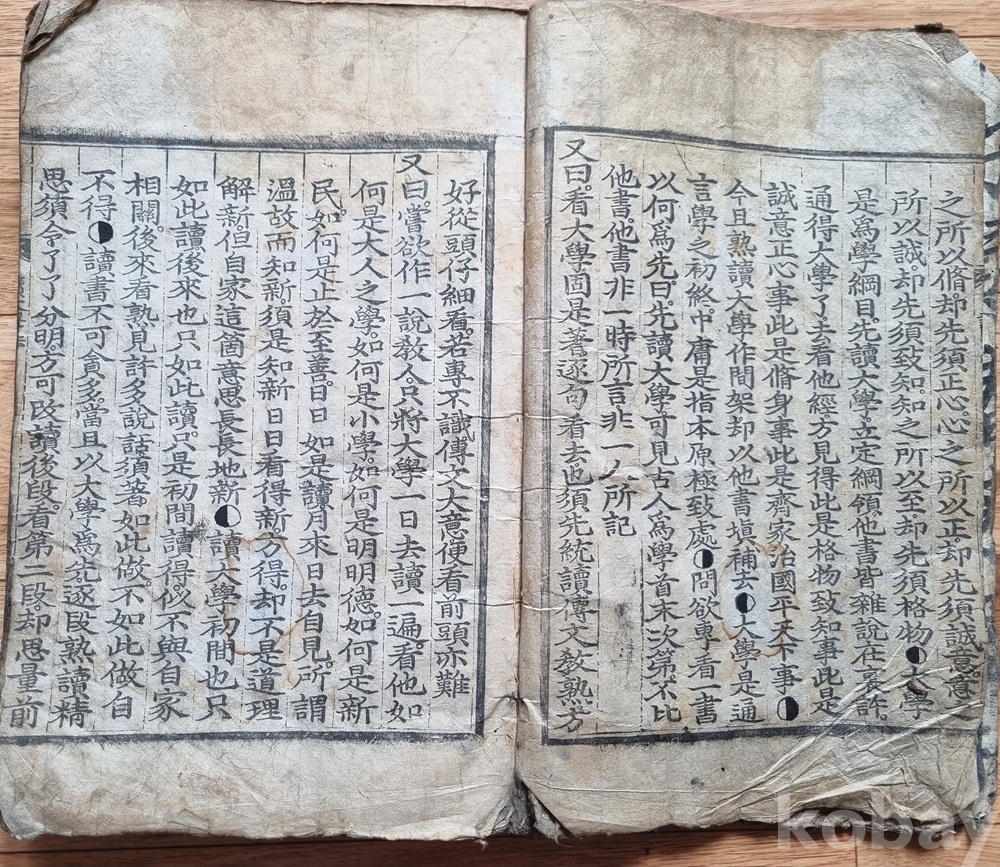 之所以脩却先須正心心之所以正却先須誠意意之
所以誠却先須致知知之所以至却先須格物◐大學
是爲學綱目先讀大學立定綱領他書皆雜說在裏許
通得大學了去看他經方見得此是格物致知事此是
誠意正心事此是脩身事此是齊家治國平天下事◐
今且熟讀大學作間架却以他書塡補去◐大學是通
言學之初終中庸是指本原極致處◐問欲專看一書
以何爲先曰先讀大學可見古人爲學首末次第不比
他書他書非一時所言非一人所記
又曰看大學固是著逐句看去也須先統讀傳文敎熟方
好從頭仔細看若專不識傳文大意便看前頭亦難
又曰嘗欲作一說敎人只將大學一日去讀一遍看他如
何是大人之學如何是小學如何是明明德如何是新
民如何是止於至善日日如是讀月來日去自見所謂
溫故而知新須是知新日日看得新方得却不是道理
解新但自家這箇意思長長地新◐讀大學初間也只
如此讀後來也只如此讀只是初間讀得似不與自家
相關後來看熟見許多說話須著如此做不如此做自
不得◐讀書不可貪多當且以大學爲先逐段熟讀精
思須令了了分明方可改讀後段看第二段却思量前
kobay